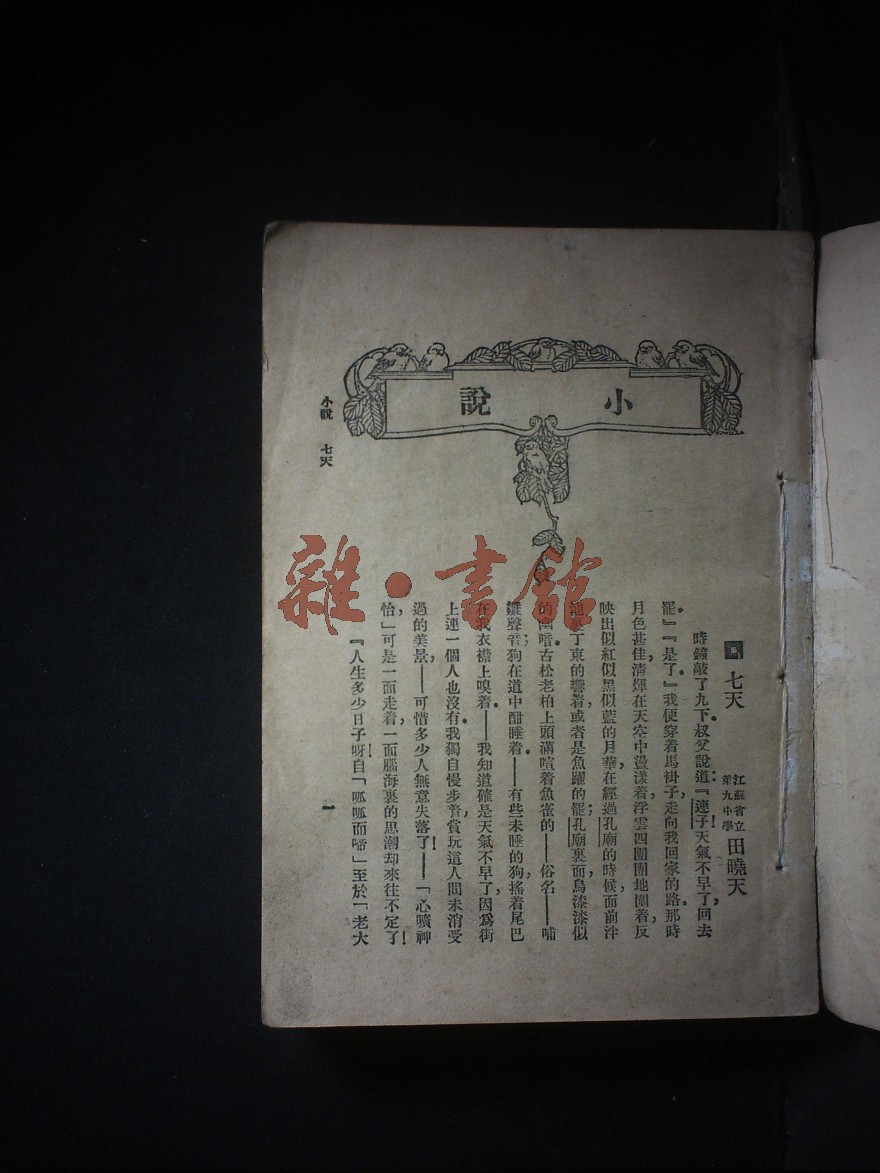 小說
七天
江蘇省立
第九中學
田曉天
時鐘敲了九下。叔父說道：『連子！天氣不早了，回去
罷。』『是了。』我便穿着馬褂子，走向我回家的路。那時
月色甚佳，清輝在天空中盪漾着，浮雲四圍團地圍着，反
映出似紅似黑似藍的月華，在經過孔廟的時候，面前泮
池裏丁東的響着，或者是魚躍的罷；孔廟裏面，烏漆漆似
的幽暗。古松老柏上頭滿喧着魚雀的——俗名——哺
雛聲音；狗在道中酣睡着——有些未睡的狗，搖着尾巴
在我衣襟上嗅着。——我知道確是天氣不早了，因為街
上連一個人也沒有。我獨自慢步着，賞玩這人間未消受
過的美景，——可惜多少人無意失落了！——「心曠神
怡，」可是一面走着，一面腦海裏的思潮却來往不定了！
『人生多少日子呀！自「呱呱而啼」至於「老大
小說　七天
一
雜·書館